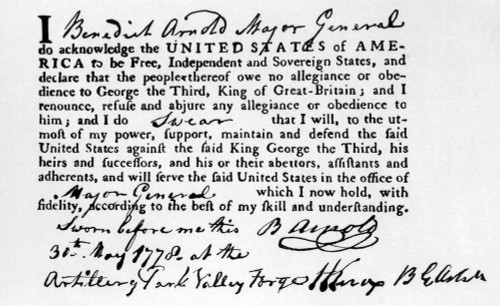 I Benedict Arnold Major General
do acknowledge the UNITED STATES of AME-
RICA to be Free, Independent and Sovereign States, and
declare that the people thereof owe no allegiance or obe-
dience to George the Third, King of Great-Britain; and I
renounce, refuse and abjure any allegiance or obedience to
him; and I do Swear that I will, to the ut-
most of my power, support, maintain and defend the said
United States against the said King George the Third, his
heirs and successors, and his or their abettors, assistants and
adherents, and will serve the said United States in the office of
Major General which I now hold, with
fidelity, according to the best of my skill and understanding.
Sworn before me this B Arnold
30th May 1778 at the
Artillery Park Valley Forge HKnox B G Artil